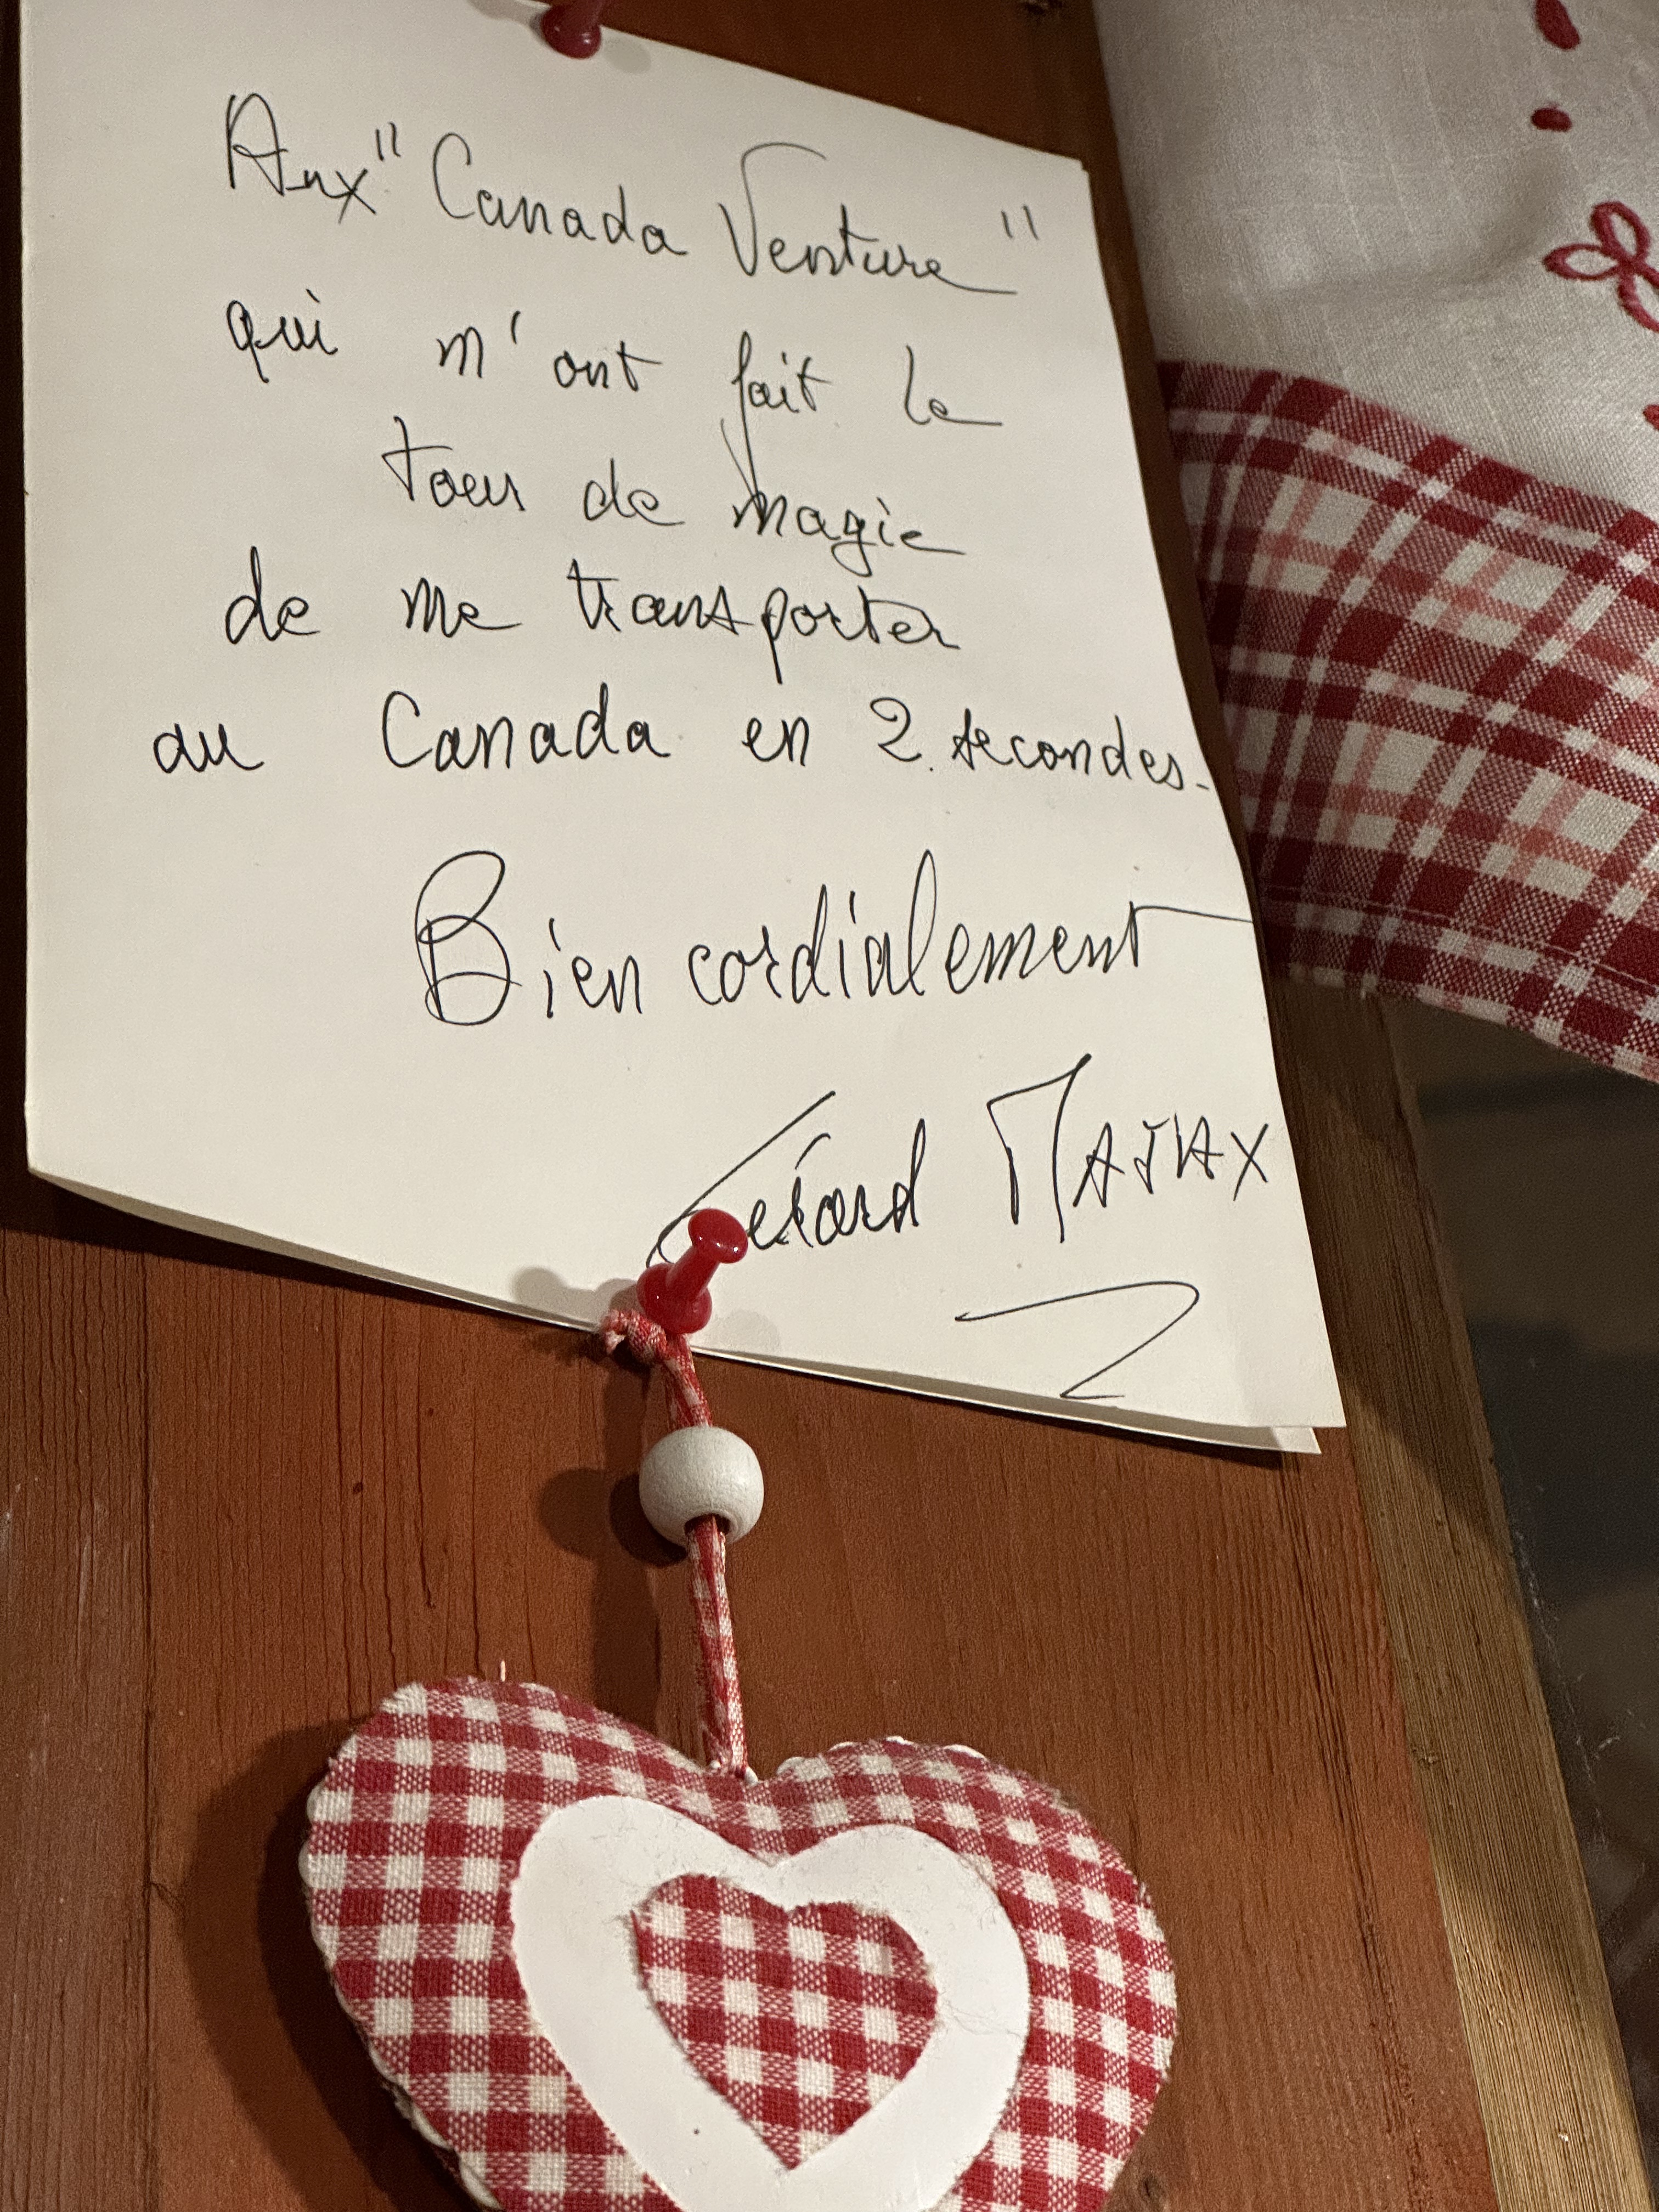 Aux "Canada Venture"
qui m'ont fait le
tour de magie
de me transporter
au Canada en 2 secondes.
Bien cordialement
Gérard MAJAX